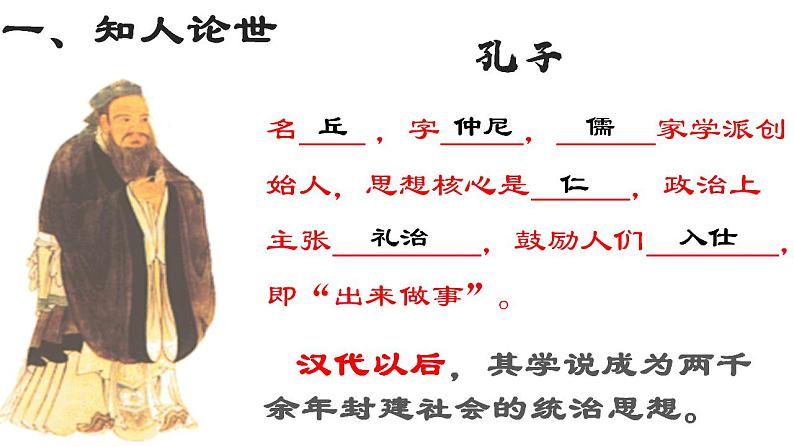 一、知人论世
孔子
名 丘 ，字 仲尼 ， 儒 家学派创
始人，思想核心是 仁 ，政治上
主张 礼治 ，鼓励人们 入仕 ，
即“出来做事”。
汉代以后，其学说成为两千
余年封建社会的统治思想。